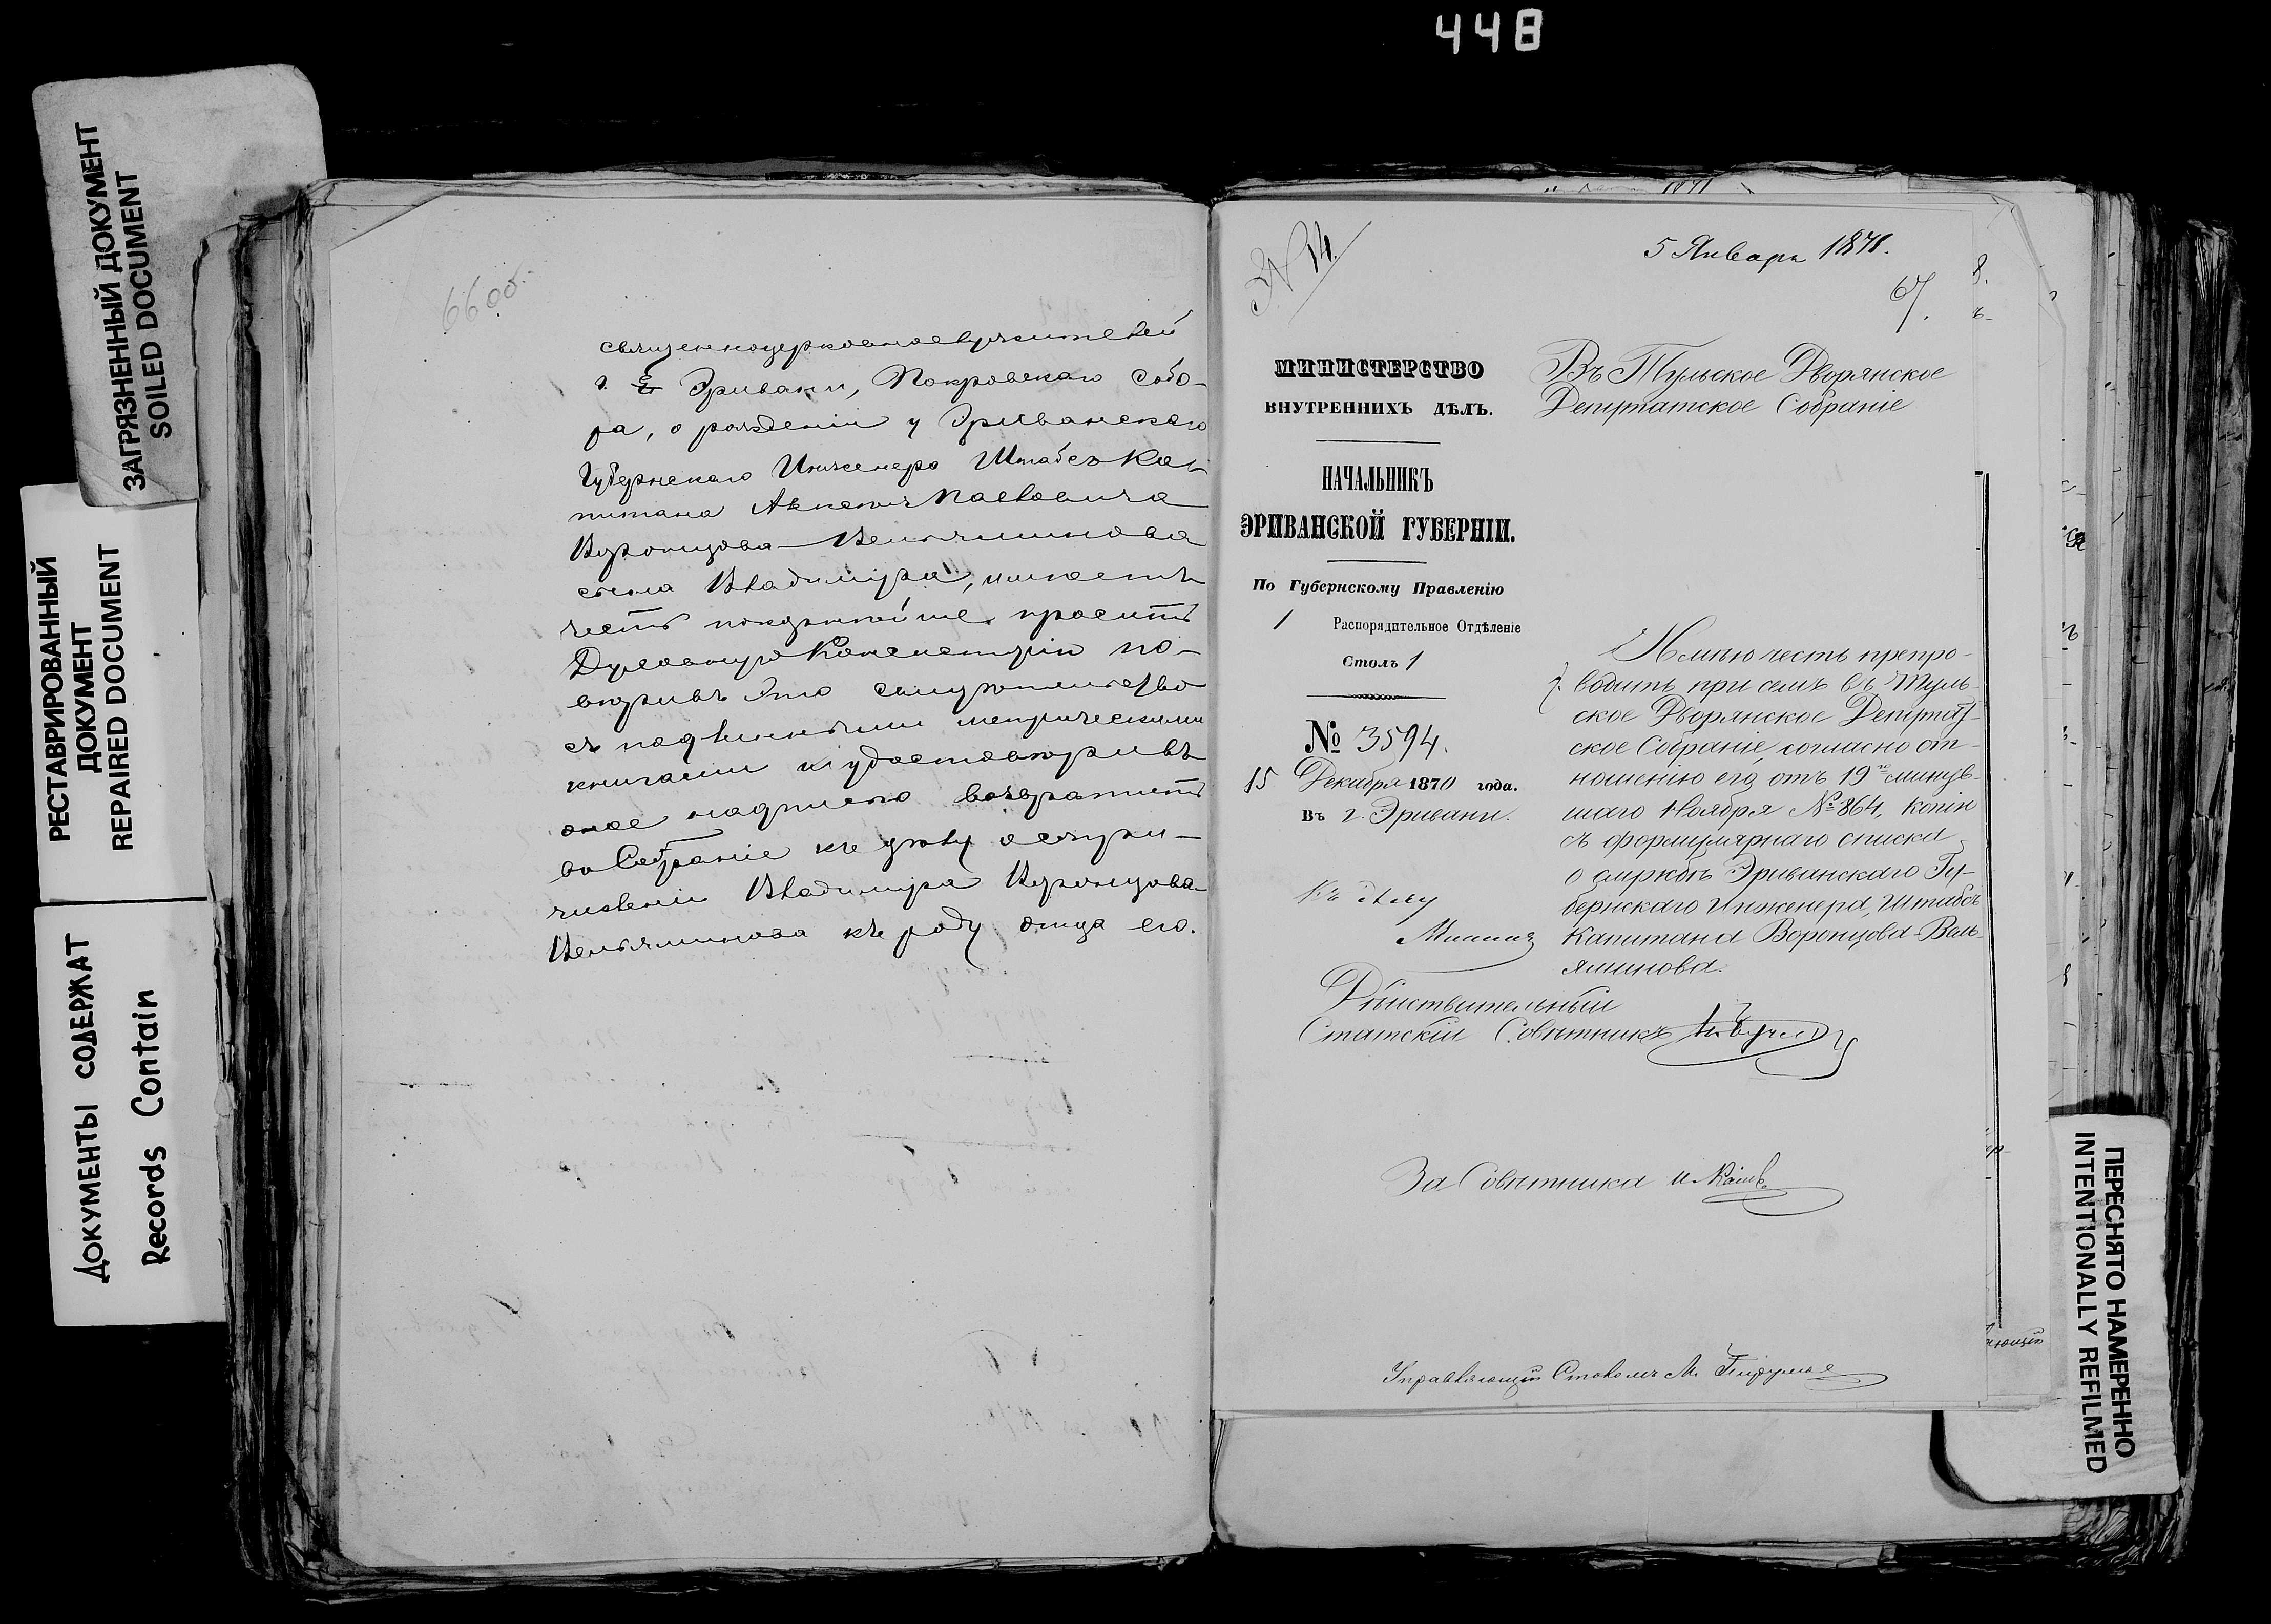 448
ЗАГРЯЗНЕННЫЙ ДОКУМЕНТ
SOILED DOCUMENT
РЕСТАВРИРОВАННЫЙ
ДОКУМЕНТ
REPAIRED DOCUMENT
ДОКУМЕНТЫ СОДЕРЖАТ
Records Contain
66 об
г. Эривани, Покровскаго Собо-
ра, о рожденіи у Эриванскаго
Губернскаго Инженера Штабсъ Ка-
питана Павловича
Воронцова-Вельяминова
сына Владиміра, имѣетъ
честь покорнѣйше проситъ
Духовную Консисторію по-
вѣривъ это свидѣтельство
съ подлинными метрическими
книгами и удостовѣривъ
оное надписью возвратить
въ Собраніе къ дѣлу о сопри-
численіи Владиміра Воронцова-
Вельяминова къ роду отца его.
№ 14.
5 Января 1871.
67.
МИНИСТЕРСТВО
ВНУТРЕННИХЪ ДѢЛЪ.
НАЧАЛЬНИКЪ
ЭРИВАНСКОЙ ГУБЕРНІИ.
По Губернскому Правленію
1 Распорядительное Отдѣленіе
Столъ 1
№ 3594.
15 Декабря 1870 года.
Въ г. Эривани.
Къ дѣлу
Въ Тульское Дворянское
Депутатское Собраніе
Имѣю честь препро-
водить при семъ въ Туль-
ское Дворянское Депутат-
ское Собраніе, согласно от-
ношенію его отъ 19го минув-
шаго Ноября № 864, копію
съ формулярнаго списка
о службѣ Эриванскаго Гу-
бернскаго Инженера, Штабсъ
Капитана Воронцова-Вель-
яминова.
Дѣйствительный
Статскій Совѣтникъ
За Совѣтника
Управляющій Столомъ М.
ПЕРЕСНЯТО НАМЕРЕННО
INTENTIONALLY REFILMED